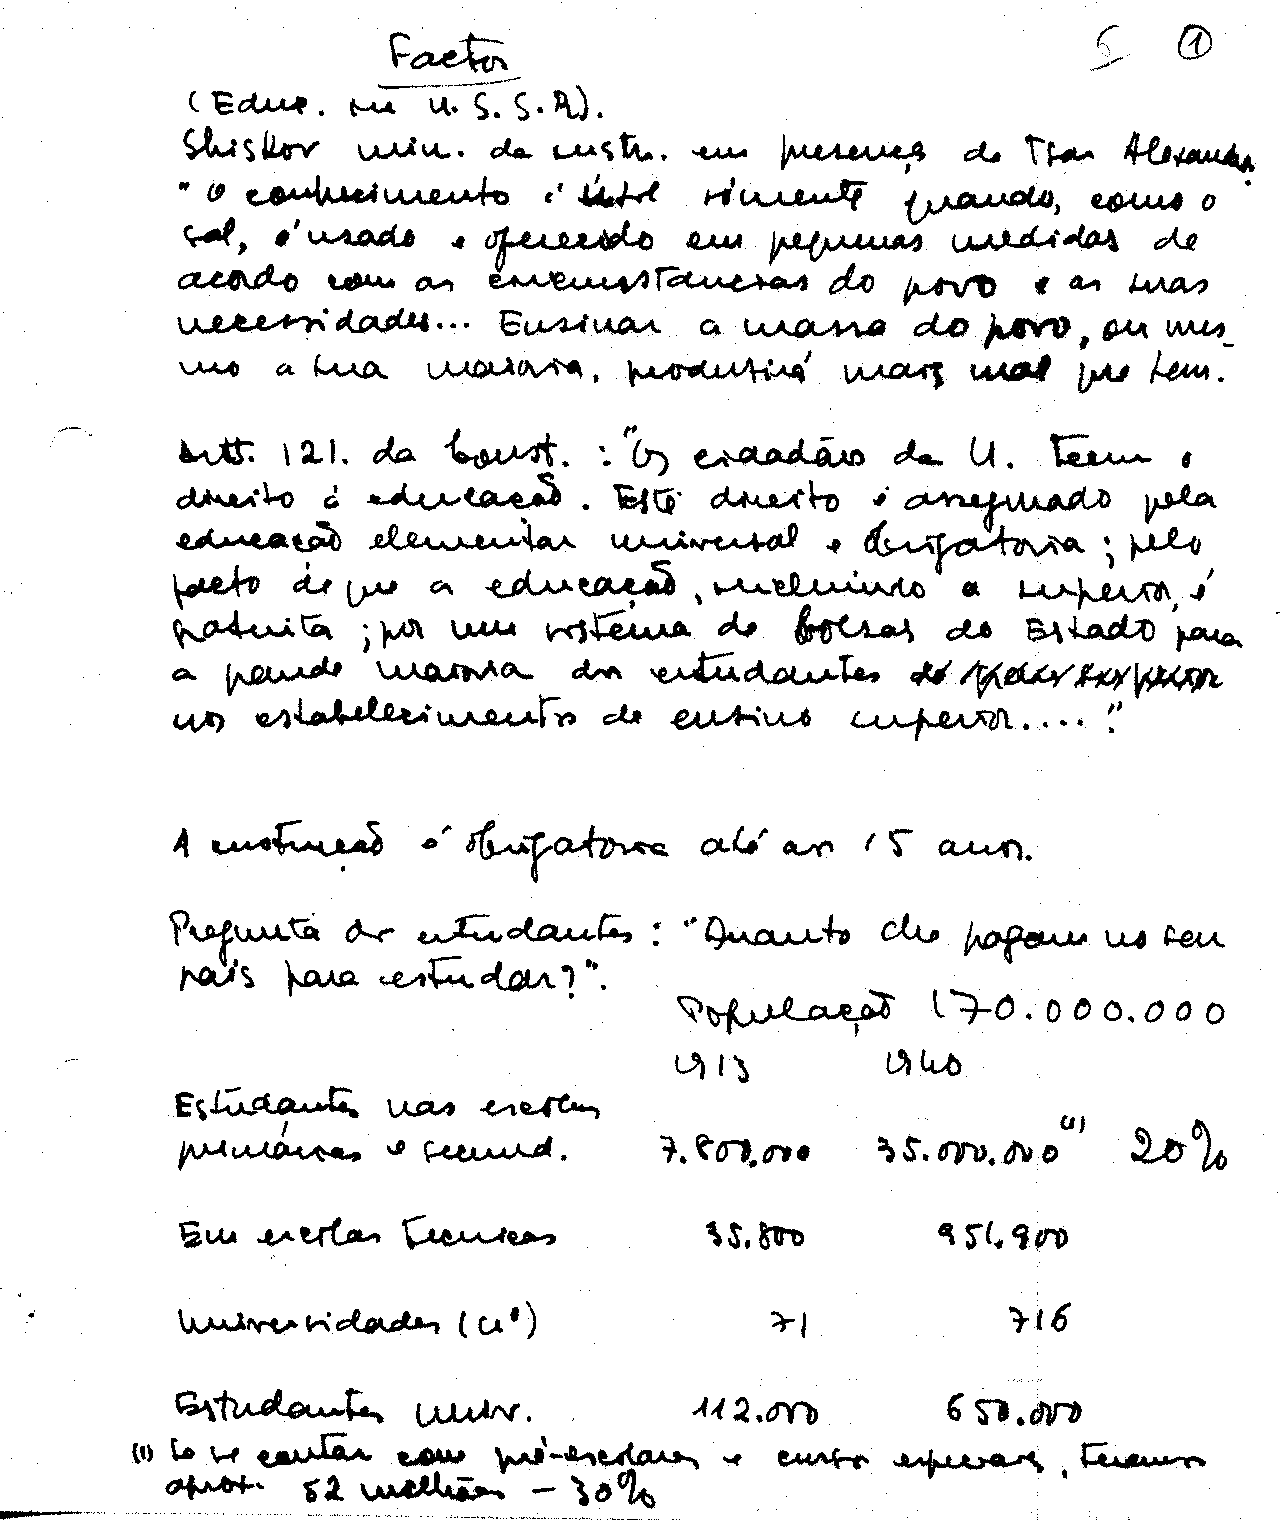 5 1
Factor
(Educ. na U.S.S.R).
Shiskov min. da instr. em presença do Tsar Alexandre.
"O conhecimento é útil sómente quando, como o
sal, é usado e oferecido em pequenas medidas de
acordo com as circunstancias do povo e as suas
necessidades... Ensinar a massa do povo, ou mes-
mo a sua maioria, produsirá mais mal que bem.
Artt. 121. da Const.: "Os cidadãos da U. teem o
direito á educação. Este direito é assegurado pela
educação elementar universal e obrigatoria; pelo
facto de que a educação, incluindo a superior, é
gratuita; por um sistema de bolsas do Estado para
a grande maioria dos estudantes
nos estabelecimentos de ensino superior...."
A instrução é obrigatoria até aos 15 anos.
Pregunta dos estudantes: "Quanto lhe pagam no seu
país para estudar?".
População 170.000.000
1913 1940
Estudantes nas escolas
primárias e secund. 7.800.000 35.000.000 (1) 20%
Em escolas tecnicas 35.800 951.900
Universidades (nº) 71 716
Estudantes univ. 112.000 650.000
(1) Se se contar com pré-escolares e cursos especiais, teremos
aprox. 52 milhões - 30%